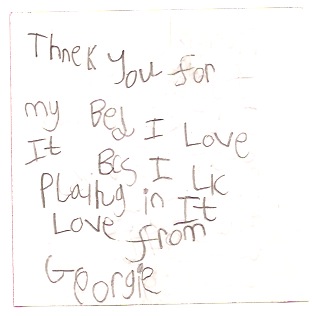 Thnek You for
my Bed I Love
It Bcs I Lic
Playing in It
Love from
Georgie